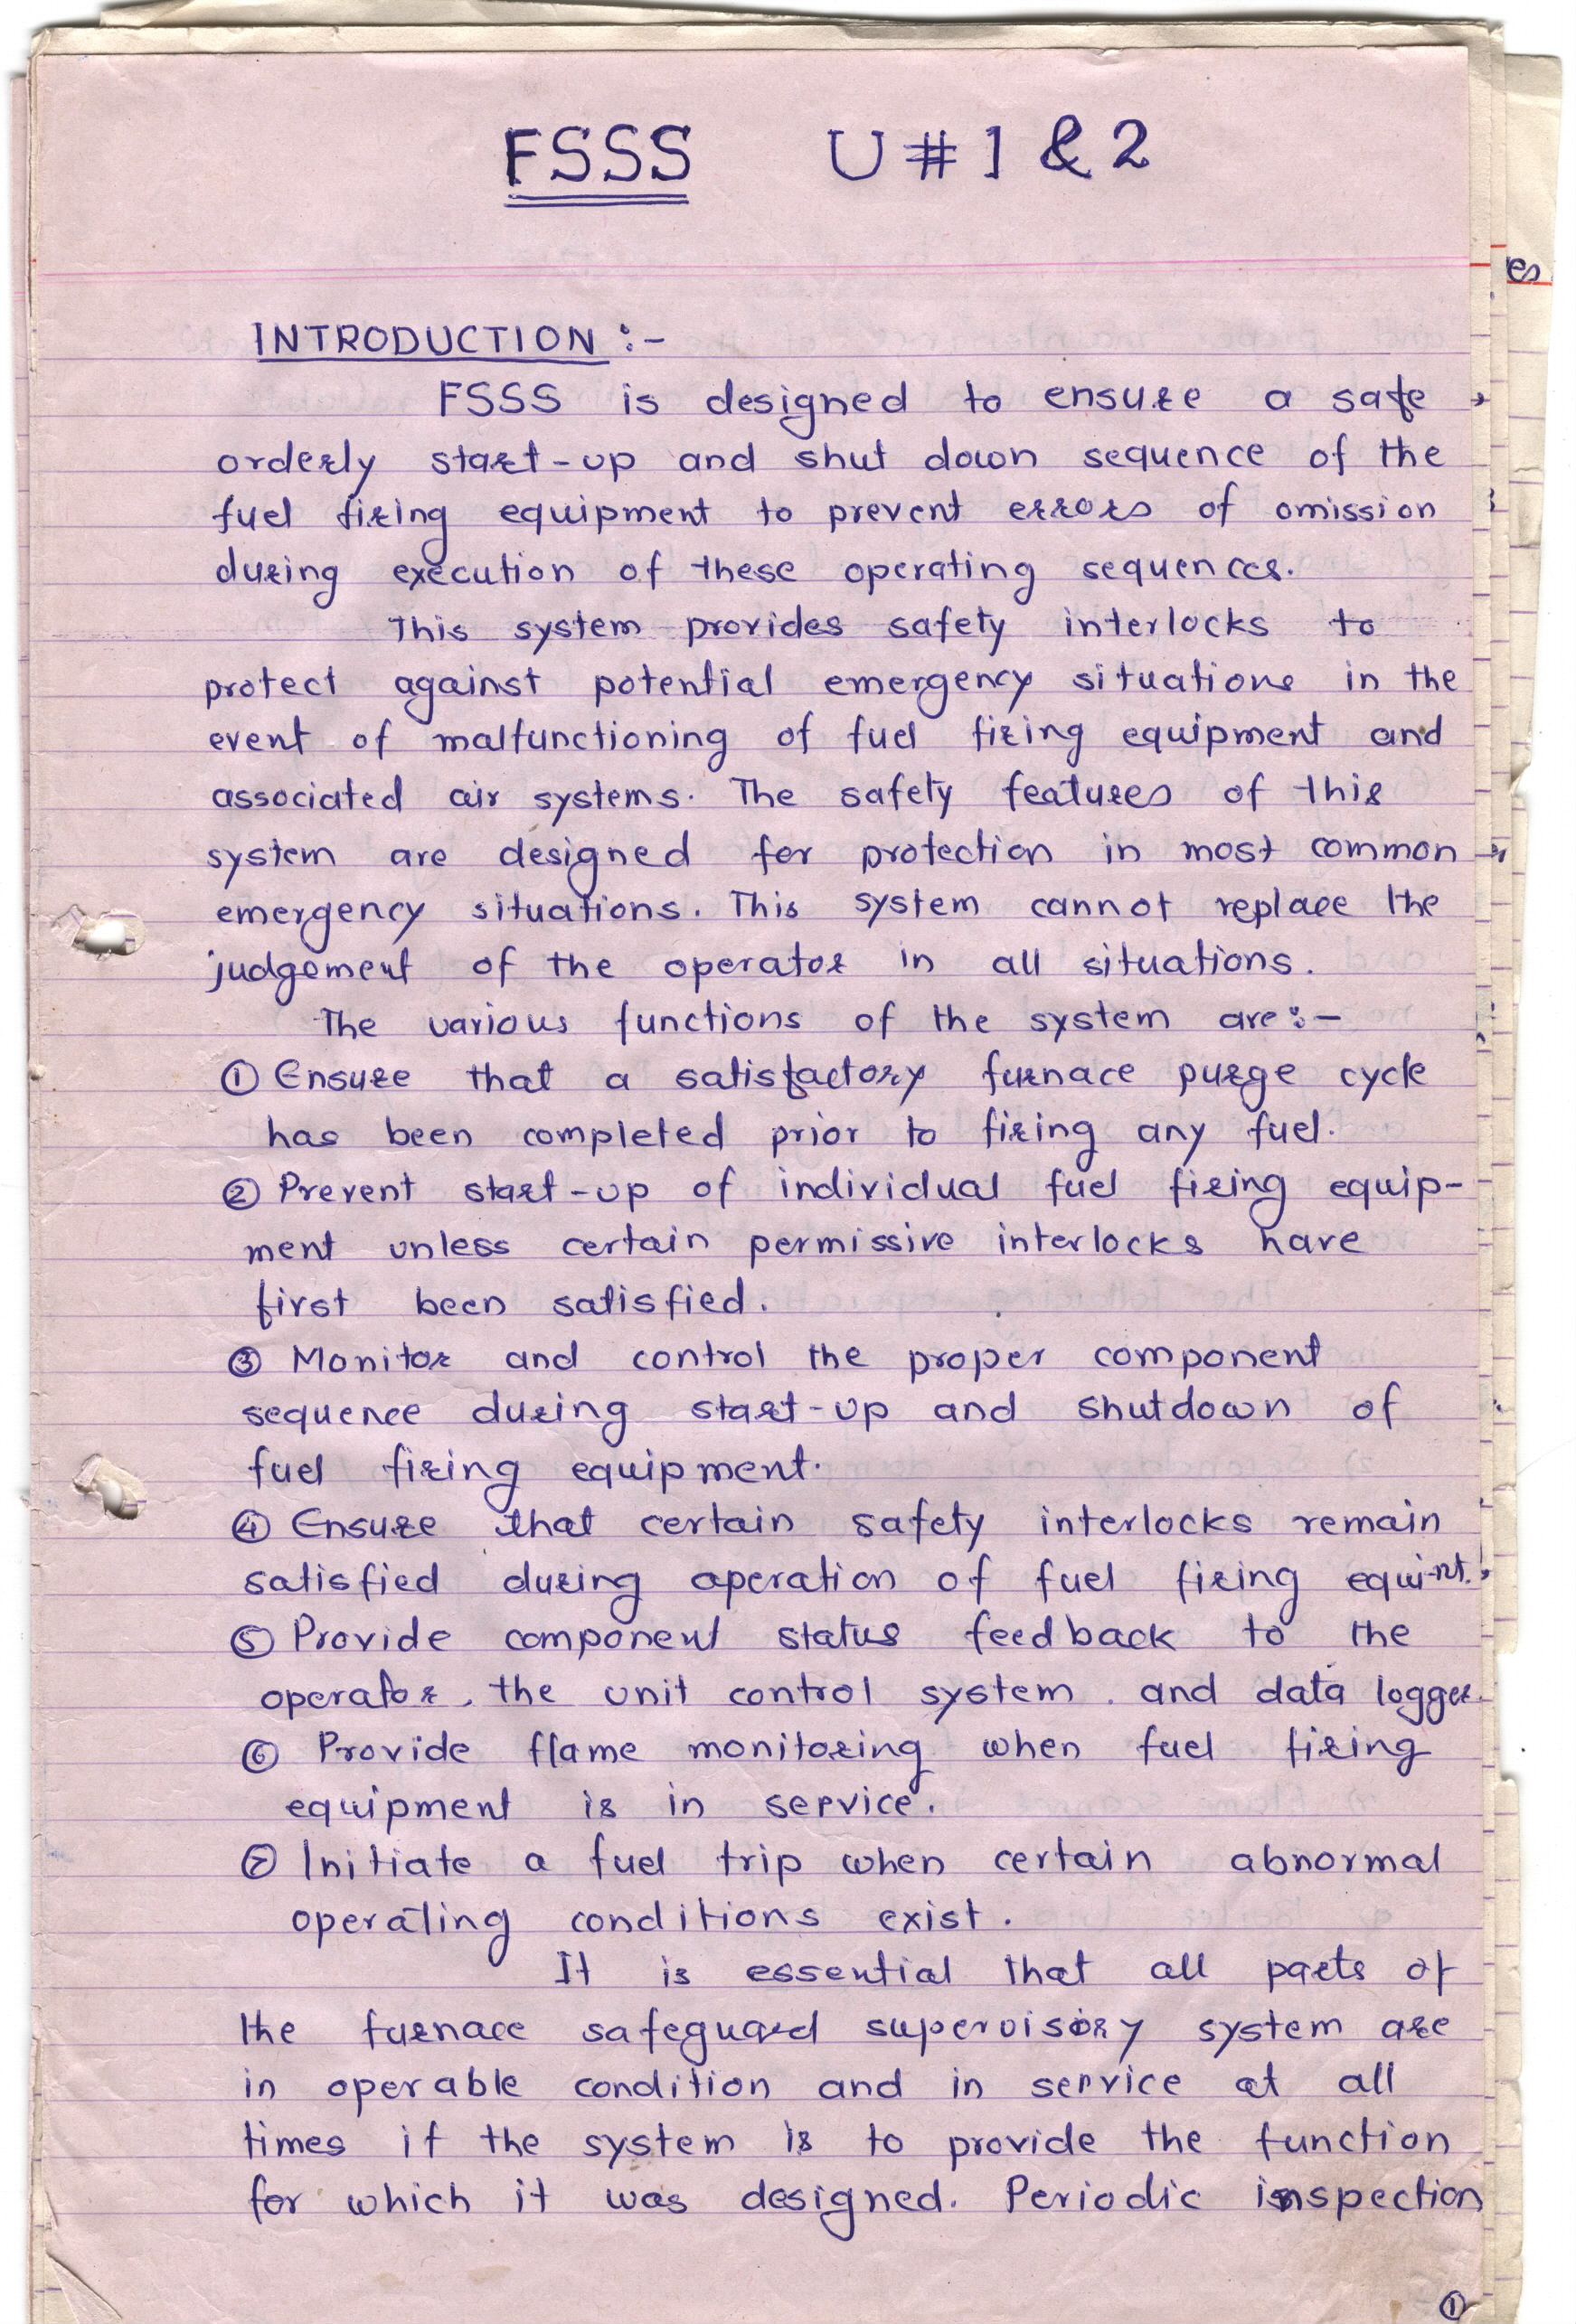 FSSS U # 1 & 2
es
INTRODUCTION :-
FSSS is designed to ensure a safe
orderly start-up and shut down sequence of the
fuel firing equipment to prevent errors of omission
during execution of these operating sequences.
This system provides safety interlocks to
protect against potential emergency situations in the
event of malfunctioning of fuel firing equipment and
associated air systems. The safety features of this
system are designed for protection in most common
emergency situations. This system cannot replace the
judgement of the operator in all situations.
The various functions of the system are :-
① Ensure that a satisfactory furnace purge cycle
has been completed prior to firing any fuel.
② Prevent start-up of individual fuel firing equip-
ment unless certain permissive interlocks have
first been satisfied.
③ Monitor and control the proper component
sequence during start-up and shutdown of
fuel firing equipment.
④ Ensure that certain safety interlocks remain
satisfied during operation of fuel firing equi-nt.
⑤ Provide component status feedback to the
operator, the unit control system and data logger.
⑥ Provide flame monitoring when fuel firing
equipment is in service.
⑦ Initiate a fuel trip when certain abnormal
operating conditions exist.
It is essential that all parts of
the furnace safeguard supervisory system are
in operable condition and in service at all
times if the system is to provide the function
for which it was designed. Periodic inspection
①